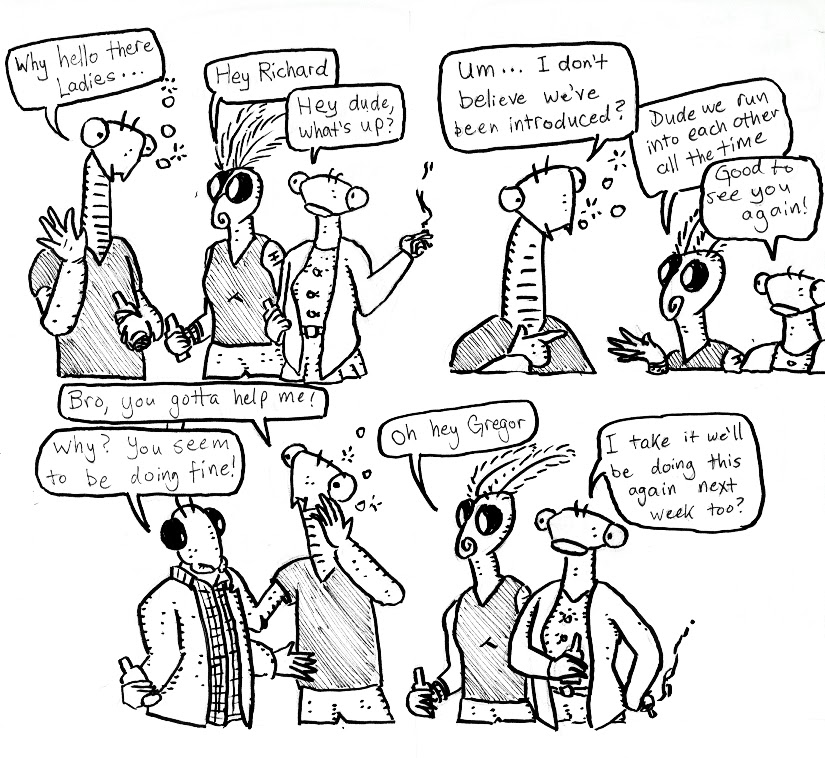 Why hello there
Ladies...
Hey Richard
Hey dude,
what's up?
Um... I don't
believe we've
been introduced?
Dude we run
into each other
all the time
Good to
see you
again!
Bro, you gotta help me!
Why? You seem
to be doing fine!
Oh hey Gregor
I take it we'll
be doing this
again next
week too?